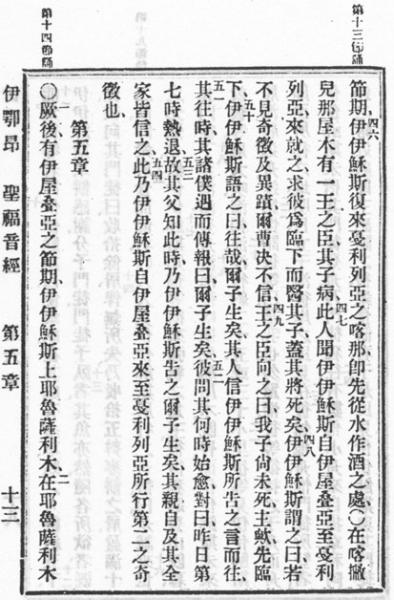 第十三
四六節期、伊伊穌斯復來戞利列亞之喀那、卽先從水作酒之處、〇在喀撇
兒那屋木有一王之臣其子病四七此人聞伊伊穌斯自伊屋叠亞至戞利
列亞、來就之求彼爲臨下而醫其子、蓋其將死矣四八伊伊穌斯謂之曰、若
不見奇徵及異蹟爾曹决不信四九王之臣向之曰、我子尙未死、主歟先臨
下五十伊伊穌斯語之曰往哉、爾子生矣、其人信伊伊穌斯所告之言而往、
五一其往時其諸僕遇而傳報曰爾子生矣五二彼問其何時始愈對曰昨日第
七時熱退五三故其父知此時乃伊伊穌斯告之爾子生矣其親自及其全
家皆信之五四此乃伊伊穌斯自伊屋叠亞來至戞利列亞所行第二之奇
徵也、
第五章
〇一厥後有伊屋叠亞之節期、伊伊穌斯上耶魯薩利木二在耶魯薩利木
第十四
伊鄂昂 聖福音經 第五章 十三